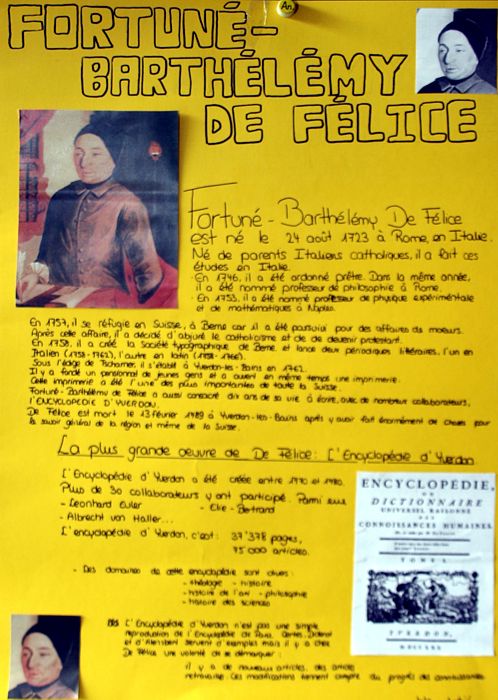 An.
FORTUNÉ-
BARTHÉLÉMY
DE FÉLICE
Fortuné - Barthélémy De Félice
est né le 24 août 1723 à Rome, en Italie.
Né de parents Italiens catholiques, il a fait ces
études en Italie.
- En 1746, il a été ordonné prêtre. Dans la même année,
il a été nommé professeur de philosophie à Rome.
- En 1753, il a été nommé professeur de physique expérimentale
et de mathématiques à Naples.
En 1757, il se réfugie en Suisse, à Berne car il a été poursuivi pour des affaires de moeurs.
Après cette affaire, il a décidé d'abjuré le catholicisme et de devenir protestant.
En 1758, il a créé la Société typographique de Berne et lance deux périodiques littéraires, l'un en
Italien (1758-1762), l'autre en latin (1758-1766).
Sous l'édige de Tscharner, il s'établit à Yverdon-les-Bains en 1762.
Il y a fondé un pensionnat de jeunes gens et a ouvert en même temps une imprimerie.
Cette imprimerie a été l'une des plus importantes de toute la Suisse.
Fortuné-Barthélémy De Félice a aussi consacré dix ans de sa vie à écrire, avec de nombreux collaborateurs,
l'ENCYCLOPEDIE D'YVERDON.
De Félice est mort le 13 février 1789 à Yverdon-les-Bains après y avoir fait énormément de choses pour
le savoir général de la région et même de la Suisse.
La plus grande oeuvre de De Félice: L'Encyclopédie d'Yverdon
L'Encyclopédie d'Yverdon a été créée entre 1770 et 1780.
Plus de 30 collaborateurs y ont participé. Parmi eux
- Leonhard Euler - Elie-Bertrand
- Albrecht von Haller...
L'encyclopédie d'Yverdon, c'est: 37'378 pages,
75'000 articles.
- Des domaines de cette encyclopédie sont divers:
- théologie - histoire
- histoire de l'art - philosophie
- histoire des sciences
L'Encyclopédie d'Yverdon n'est pas une simple
reproduction de l'Encyclopédie de Paris. Certes, Diderot
et d'Alembert servent d'exemples mais il y a chez
De Félice une volonté de se démarquer:
il y a de nouveaux articles, des articles
retravaillés. Ces modifications tiennent compte du progrès des connaissances
ENCYCLOPÉDIE,
OU
DICTIONNAIRE
UNIVERSEL RAISONNÉ
DES
CONNOISSANCES HUMAINES.
TOME I.
YVERDON,